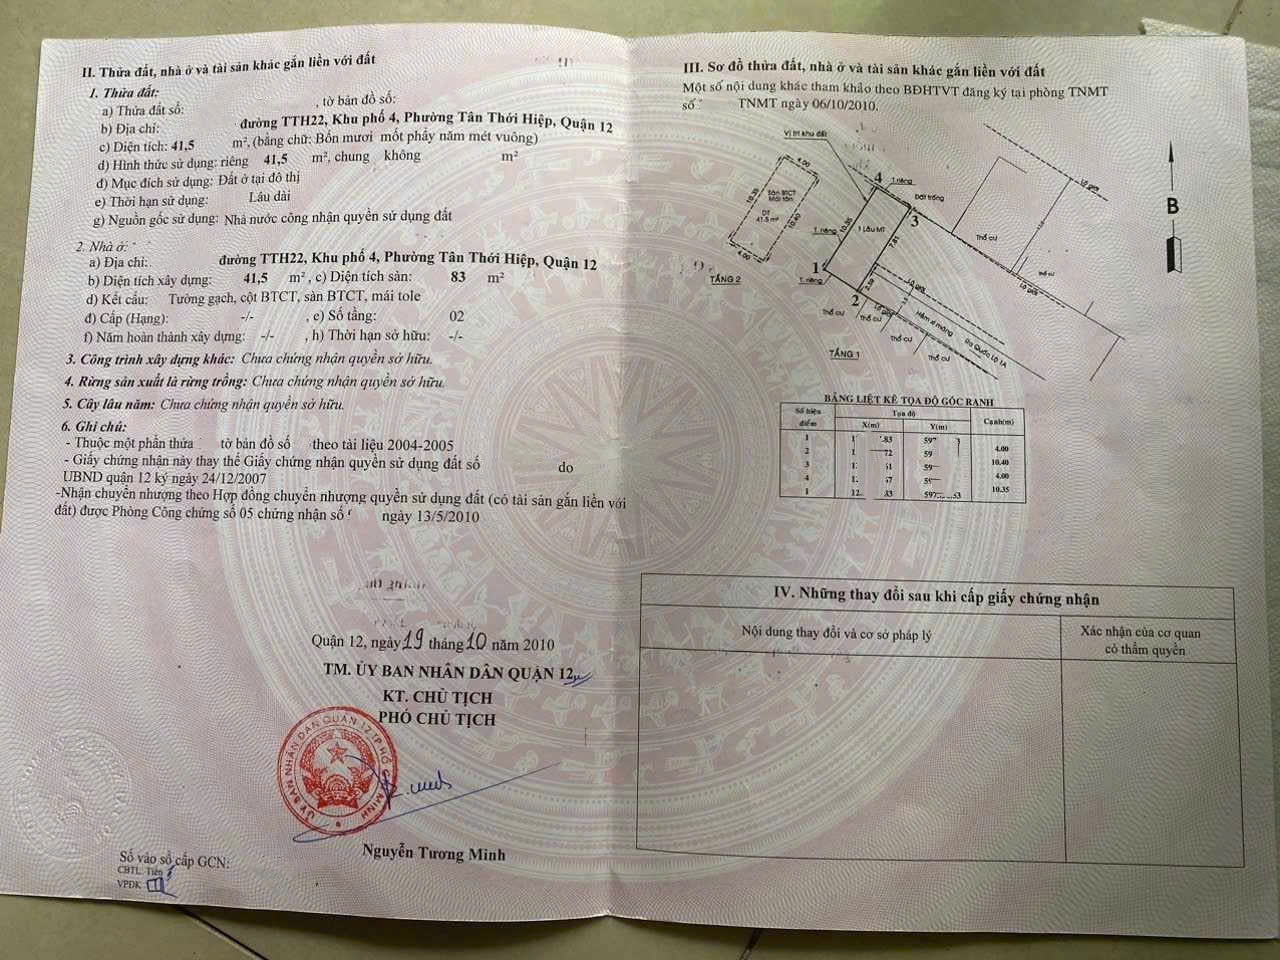 II. Thửa đất, nhà ở và tài sản khác gắn liền với đất
1. Thửa đất:
a) Thửa đất số: , tờ bản đồ số:
b) Địa chỉ: đường TTH22, Khu phố 4, Phường Tân Thới Hiệp, Quận 12
c) Diện tích: 41,5 m², (bằng chữ: Bốn mươi mốt phẩy năm mét vuông)
d) Hình thức sử dụng: riêng 41,5 m², chung không m²
đ) Mục đích sử dụng: Đất ở tại đô thị
e) Thời hạn sử dụng: Lâu dài
g) Nguồn gốc sử dụng: Nhà nước công nhận quyền sử dụng đất
2. Nhà ở:
a) Địa chỉ: đường TTH22, Khu phố 4, Phường Tân Thới Hiệp, Quận 12
b) Diện tích xây dựng: 41,5 m², c) Diện tích sàn: 83 m²
d) Kết cấu: Tường gạch, cột BTCT, sàn BTCT, mái tole
đ) Cấp (Hạng): -/- , e) Số tầng: 02
f) Năm hoàn thành xây dựng: -/- , h) Thời hạn sở hữu: -/-
3. Công trình xây dựng khác: Chưa chứng nhận quyền sở hữu.
4. Rừng sản xuất là rừng trồng: Chưa chứng nhận quyền sở hữu.
5. Cây lâu năm: Chưa chứng nhận quyền sở hữu.
6. Ghi chú:
- Thuộc một phần thửa tờ bản đồ số theo tài liệu 2004-2005
- Giấy chứng nhận này thay thế Giấy chứng nhận quyền sử dụng đất số do
UBND quận 12 ký ngày 24/12/2007
-Nhận chuyển nhượng theo Hợp đồng chuyển nhượng quyền sử dụng đất (có tài sản gắn liền với
đất) được Phòng Công chứng số 05 chứng nhận số ngày 13/5/2010
Quận 12, ngày 19 tháng 10 năm 2010
TM. ỦY BAN NHÂN DÂN QUẬN 12
KT. CHỦ TỊCH
PHÓ CHỦ TỊCH
ỦY BAN NHÂN DÂN QUẬN 12 TP HỒ CHÍ MINH
Nguyễn Tương Minh
Số vào sổ cấp GCN:
CBTL. Tiên
VPĐK
III. Sơ đồ thửa đất, nhà ở và tài sản khác gắn liền với đất
Một số nội dung khác tham khảo theo BĐHTVT đăng ký tại phòng TNMT
số TNMT ngày 06/10/2010.
Vị trí khu đất
4.00
10.35
Sàn BTCT
Mái tôn
DT
41.5 m²
10.40
4.00
TẦNG 2
4
T.riêng
Đất trống
3
10.35
1 Lầu MT
7.81
T.riêng
1
T.riêng
2.59
2
Lộ giới
Thổ cư
Thổ cư
Thổ cư
Thổ cư
Hẻm xi măng
Ra Quốc Lộ 1A
Lộ giới
Thổ cư
Thổ cư
Lộ giới
Lộ giới
B
TẦNG 1
BẢNG LIỆT KÊ TỌA ĐỘ GÓC RANH
Số hiệu điểm Tọa độ Cạnh(m)
X(m) Y(m)
1 1 83 59
4.00
2 1 72 59
10.40
3 1 59
4.00
4 1 59
10.35
1 12 33 597 53
IV. Những thay đổi sau khi cấp giấy chứng nhận
Nội dung thay đổi và cơ sở pháp lý
Xác nhận của cơ quan
có thẩm quyền